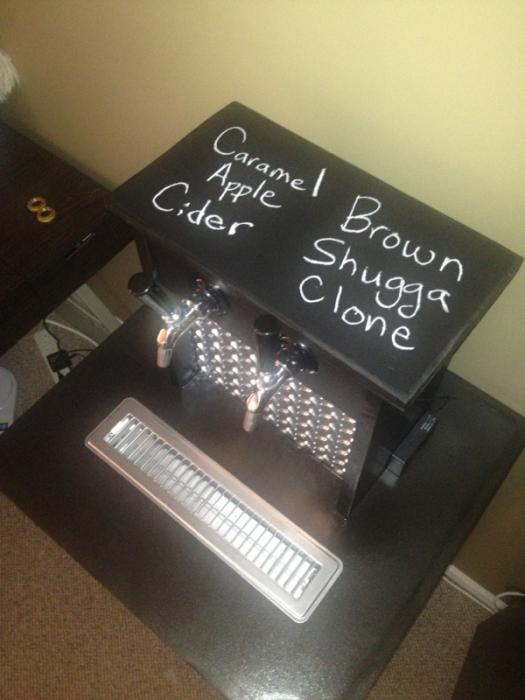 Caramel
Apple
Cider
Brown
Shugga
Clone